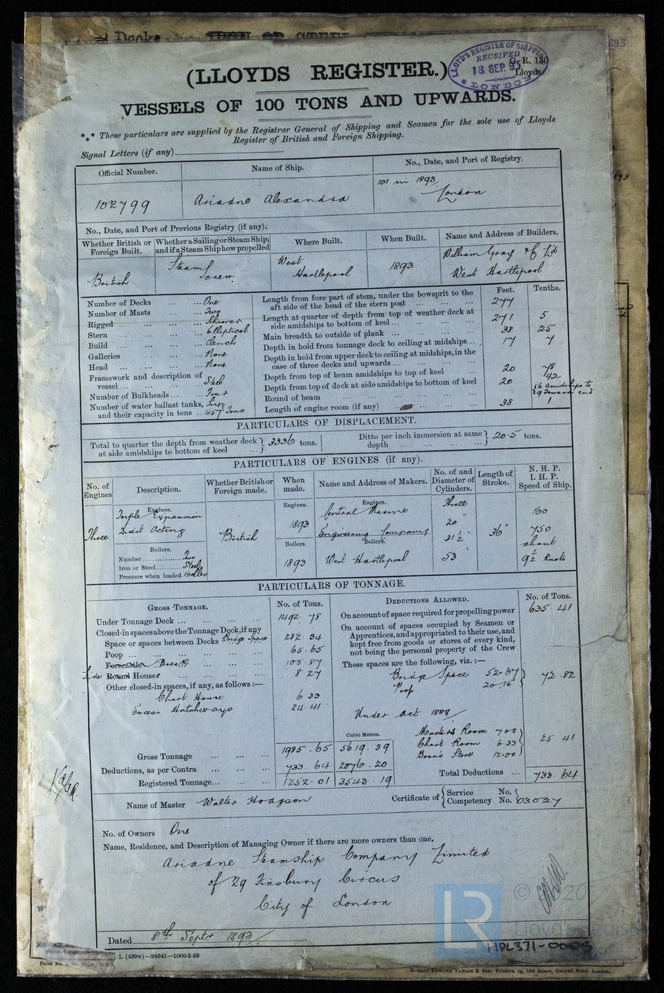 LLOYD'S REGISTER OF SHIPPING
RECEIVED
18 SEP. 93
LONDON
(LLOYDS REGISTER.)
VESSELS OF 100 TONS AND UPWARDS.
*** These particulars are supplied by the Registrar General of Shipping and Seamen for the sole use of Lloyds
Register of British and Foreign Shipping.
Signal Letters (if any)
Official Number. Name of Ship. No., Date, and Port of Registry.
102799 Ariadne Alexandra 101 in 1893 London
No., Date, and Port of Previous Registry (if any):
Whether British or Foreign Built. Whether a Sailing or Steam Ship; and if a Steam Ship how propelled Where Built. When Built. Name and Address of Builders.
British Steam Screw West Hartlepool 1893 William Gray & Co Ltd West Hartlepool
Number of Decks One
Number of Masts Two
Rigged Schooner
Stern Elliptical
Build Clench
Galleries None
Head None
Framework and description of vessel Steel
Number of Bulkheads Four
Number of water ballast tanks, and their capacity in tons 457 Tons
Feet. Tenths.
Length from fore part of stem, under the bowsprit to the aft side of the head of the stern post 277
Length at quarter of depth from top of weather deck at side amidships to bottom of keel 271 5
Main breadth to outside of plank 38 25
Depth in hold from tonnage deck to ceiling at midships 17 7
Depth in hold from upper deck to ceiling at midships, in the case of three decks and upwards
Depth from top of beam amidships to top of keel 20 78
Depth from top of deck at side amidships to bottom of keel 20 42
Round of beam
Length of engine room (if any) 38 1
PARTICULARS OF DISPLACEMENT.
Total to quarter the depth from weather deck at side amidships to bottom of keel 3336 tons. Ditto per inch immersion at same depth 20.5 tons.
PARTICULARS OF ENGINES (if any).
No. of Engines Description. Whether British or Foreign made. When made. Name and Address of Makers. No. of and Diameter of Cylinders. Length of Stroke. N. H. P. I. H. P. Speed of Ship.
Engines. Engines. Engines.
Three Triple Expansion Direct Acting British 1893 Central Marine Engineering Company Three 20 31½ 53 36" 160 750 about 9½ Knots
Boilers. Boilers. Boilers.
Number Two
Iron or Steel Steel
Pressure when loaded 160 lbs
1893 West Hartlepool
PARTICULARS OF TONNAGE.
GROSS TONNAGE. No. of Tons.
Under Tonnage Deck 1492.78
Closed-in spaces above the Tonnage Deck, if any
Space or spaces between Decks Bridge Space 282.34
Poop 65.65
Forecastle Break 105.87
Side Round House 8.27
Other closed-in spaces, if any, as follows:—
Chart House 6.33
Excess Hatchways 24.41
Cubic Metres.
Gross Tonnage 1985.65 5619.39
Deductions, as per Contra 733.64 2076.20
Registered Tonnage 1252.01 3543.19
DEDUCTIONS ALLOWED. No. of Tons.
On account of space required for propelling power 635.41
On account of spaces occupied by Seamen or Apprentices, and appropriated to their use, and kept free from goods or stores of every kind, not being the personal property of the Crew
These spaces are the following, viz.:—
Bridge Space 52.67
Poop 20.15
72.82
Under Act 1889
Masters Room 7.08
Chart Room 6.33
Bosn's Store 12.00
25.41
Total Deductions 733.64
Name of Master Walter Hodgson Certificate of Service No. Competency No. 03027
No. of Owners One
Name, Residence, and Description of Managing Owner if there are more owners than one.
Ariadne Steamship Company Limited
of 29 Finsbury Circus
City of London
Dated 8th Septr 1893
LR
© 2020
Lloyd's
HPL371-0005